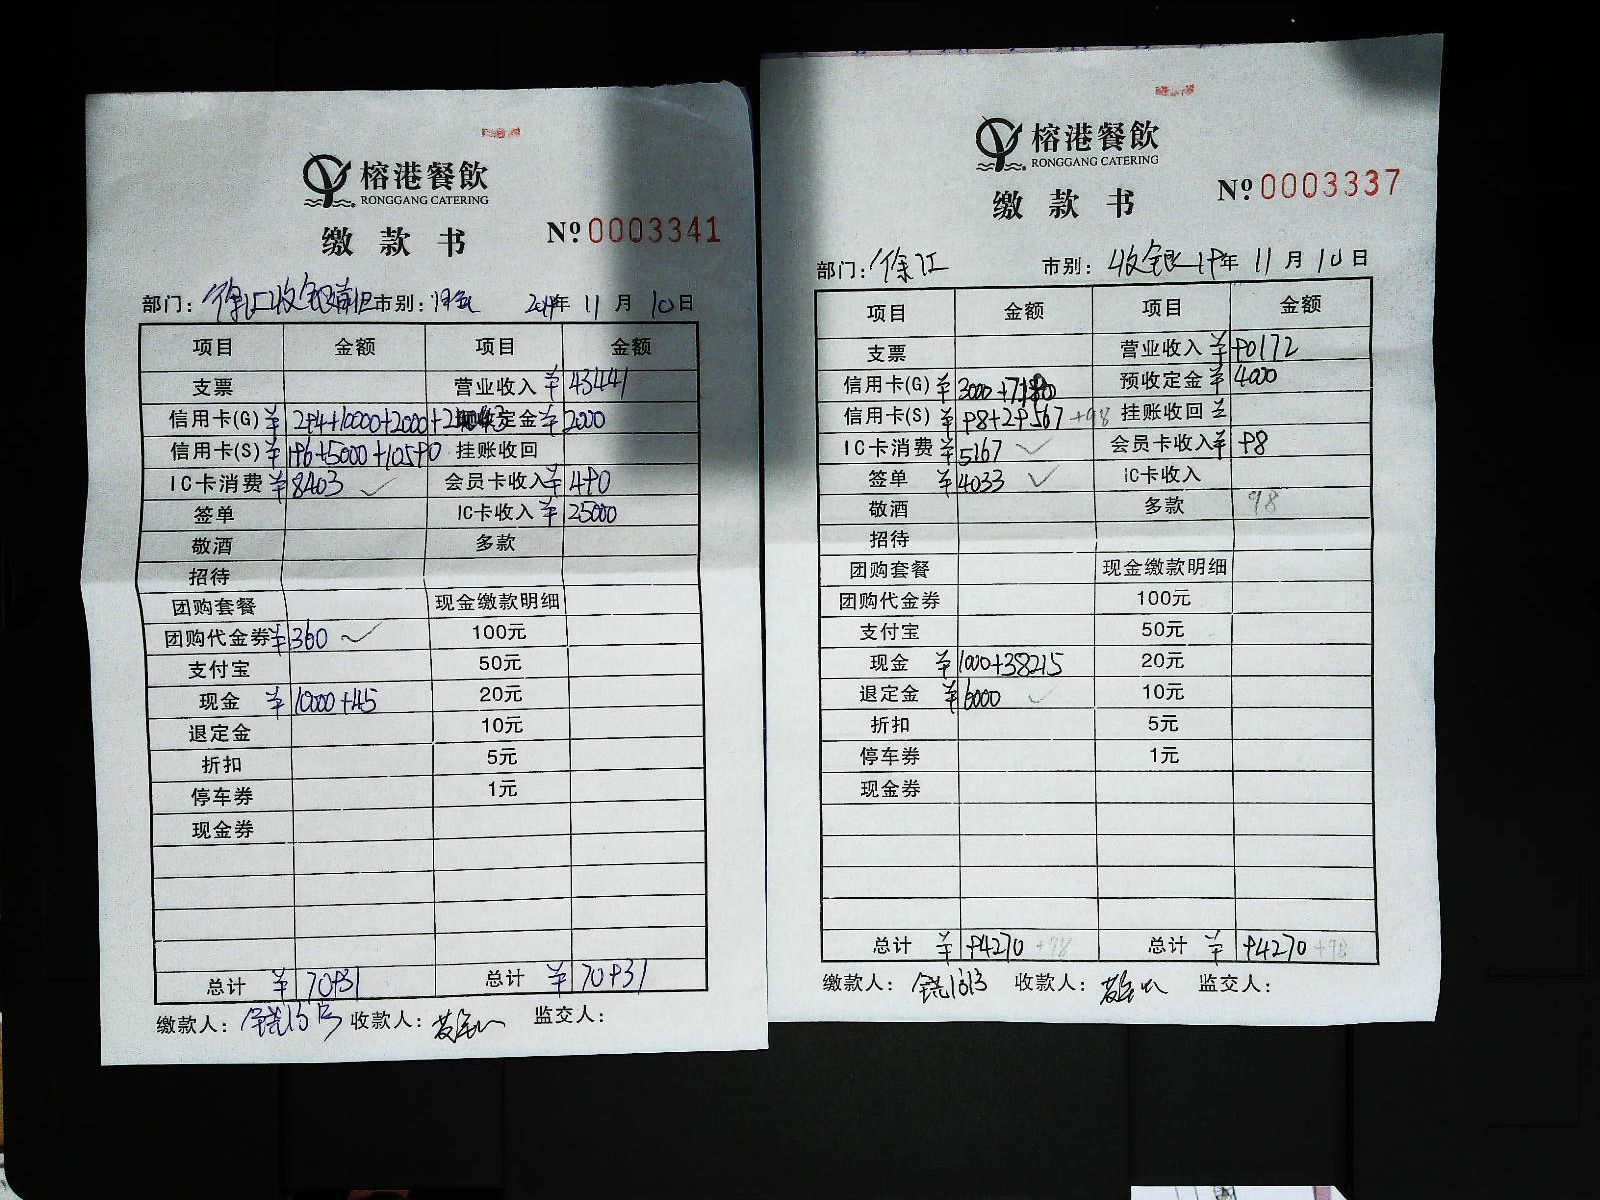 榕港餐飲
RONGGANG CATERING
缴款书
№ 0003341
部门: 市别: 年 11 月 10 日
项目 金额 项目 金额
支票 营业收入 ¥ 43441
信用卡(G) ¥ 294+10000+2000+ 定金 ¥ 2000
信用卡(S) ¥ 196+5000+10590 挂账收回
IC卡消费 ¥ 8403 ✓ 会员卡收入 ¥ 490
签单 IC卡收入 ¥ 25000
敬酒 多款
招待
团购套餐 现金缴款明细
团购代金券 ¥ 360 ✓ 100元
支付宝 50元
现金 ¥ 10000+45 20元
退定金 10元
折扣 5元
停车券 1元
现金券
总计 ¥ 70931 总计 ¥ 70931
缴款人: 收款人: 监交人:
榕港餐飲
RONGGANG CATERING
缴款书
№ 0003337
部门: 徐汇 市别: 收银 19年 11 月 10 日
项目 金额 项目 金额
支票 营业收入 ¥ 90172
信用卡(G) ¥ 3000+ 预收定金 ¥ 4000
信用卡(S) ¥ 98+29567+98 挂账收回
IC卡消费 ¥ 5167 ✓ 会员卡收入 ¥ 98
签单 ¥ 4033 ✓ IC卡收入
敬酒 多款 98
招待
团购套餐 现金缴款明细
团购代金券 100元
支付宝 50元
现金 ¥ 1000+38215 20元
退定金 ¥ 6000 ✓ 10元
折扣 5元
停车券 1元
现金券
总计 ¥ 94270+98 总计 ¥ 94270+98
缴款人: 收款人: 监交人: